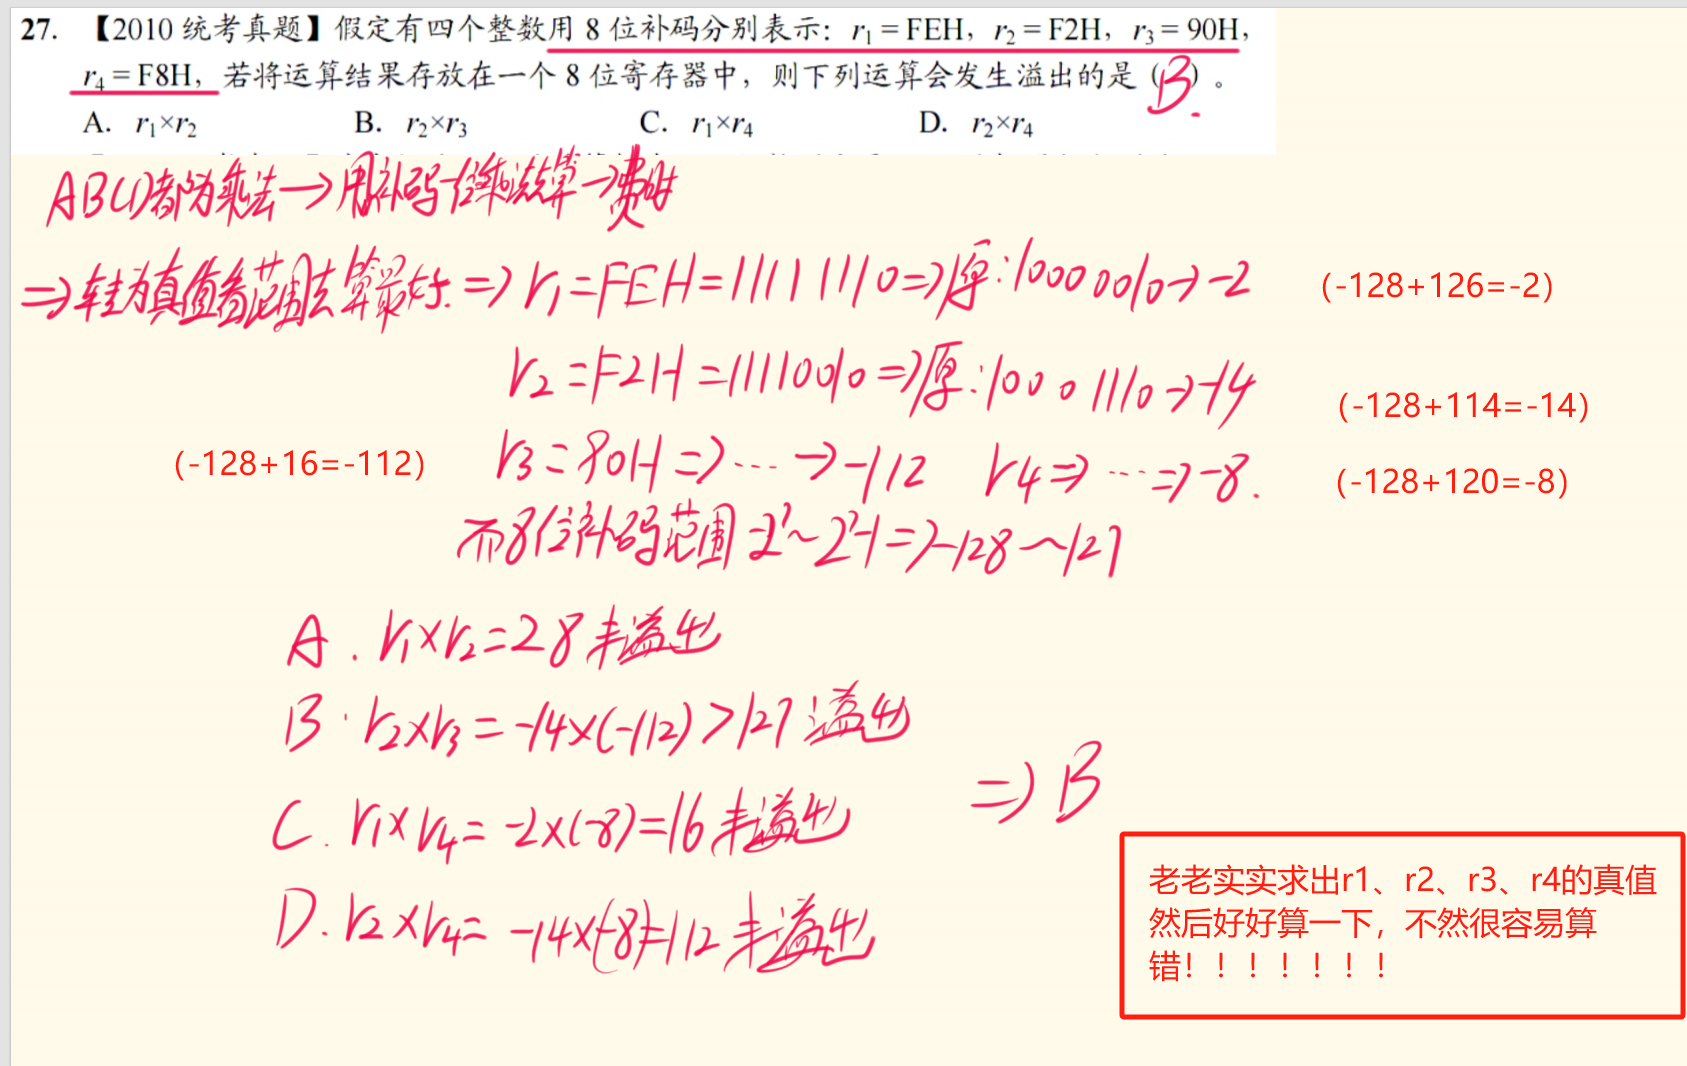 27. 【2010 统考真题】假定有四个整数用 8 位补码分别表示：r₁ = FEH，r₂ = F2H，r₃ = 90H，
r₄ = F8H，若将运算结果存放在一个 8 位寄存器中，则下列运算会发生溢出的是（B）。
A. r₁×r₂ B. r₂×r₃ C. r₁×r₄ D. r₂×r₄
ABCD都为乘法→用补码一位乘法算→费时
⇒转为真值看范围去算最好.⇒r₁=FEH=11111110⇒原:10000010→-2 (-128+126=-2)
r₂=F2H=11110010⇒原:10001110→-14
(-128+114=-14)
(-128+16=-112) r₃=90H⇒…→-112 r₄⇒…⇒-8. (-128+120=-8)
而8位补码范围-2⁷~2⁷-1⇒-128~127
A. r₁×r₂=28未溢出
B. r₂×r₃=-14×(-112)>127溢出
⇒B
C. r₁×r₄=-2×(-8)=16未溢出
D. r₂×r₄=-14×(-8)=112未溢出
老老实实求出r1、r2、r3、r4的真值
然后好好算一下，不然很容易算
错！！！！！！！